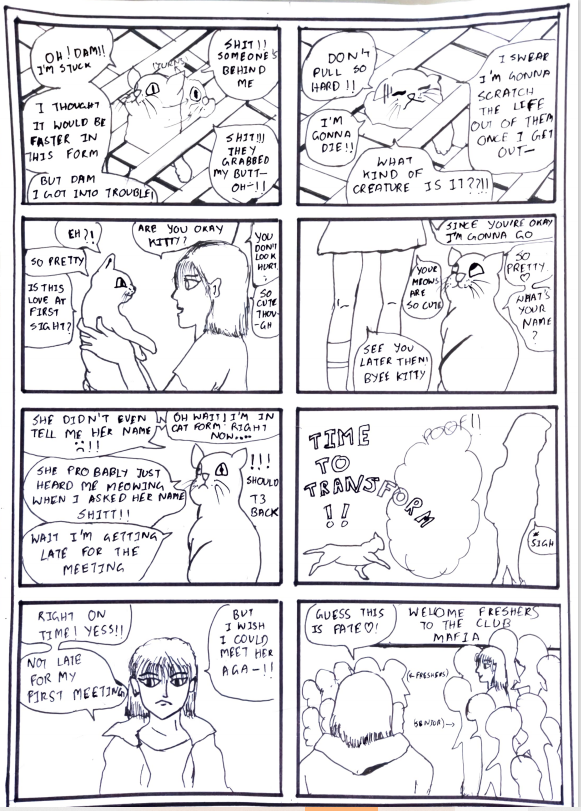 OH! DAM!!
I'M STUCK
SHIT!!
SOMEONE'S
BEHIND
ME
I THOUGHT
IT WOULD BE
FASTER IN
THIS FORM
SHIT!!!
THEY
GRABBED
MY BUTT—
OH—!!
BUT DAM
I GOT INTO TROUBLE!
DON'T
PULL SO
HARD!!
I SWEAR
I'M GONNA
SCRATCH
THE LIFE
OUT OF THEM
ONCE I GET
OUT—
I'M
GONNA
DIE!!
WHAT
KIND OF
CREATURE IS IT??!!
EH?!
ARE YOU OKAY
KITTY?
YOU
DON'T
LOOK
HURT
SO PRETTY
IS THIS
LOVE AT
FIRST
SIGHT?
SO
CUTE
THOU-
GH
SINCE YOU'RE OKAY
I'M GONNA GO
YOUR
MEOWS
ARE
SO CUTE
SO
PRETTY
♡
WHAT'S
YOUR
NAME
?
SEE YOU
LATER THEN!
BYEE KITTY
SHE DIDN'T EVEN
TELL ME HER NAME
!!
OH WAIT! I'M IN
CAT FORM RIGHT
NOW....
SHE PROBABLY JUST
HEARD ME MEOWING
WHEN I ASKED HER NAME
SHITT!!
!!!
SHOULD
T3
BACK
WAIT I'M GETTING
LATE FOR THE
MEETING
TIME
TO
TRANSFORM
!!
POOF!!
*
SIGH
RIGHT ON
TIME! YESS!!
BUT
I WISH
I COULD
MEET HER
AGA—!!
NOT LATE
FOR MY
FIRST MEETING
GUESS THIS
IS FATE♡!
WELOME FRESHERS
TO THE CLUB
MAFIA
(←FRESHERS)
SENIOR)→